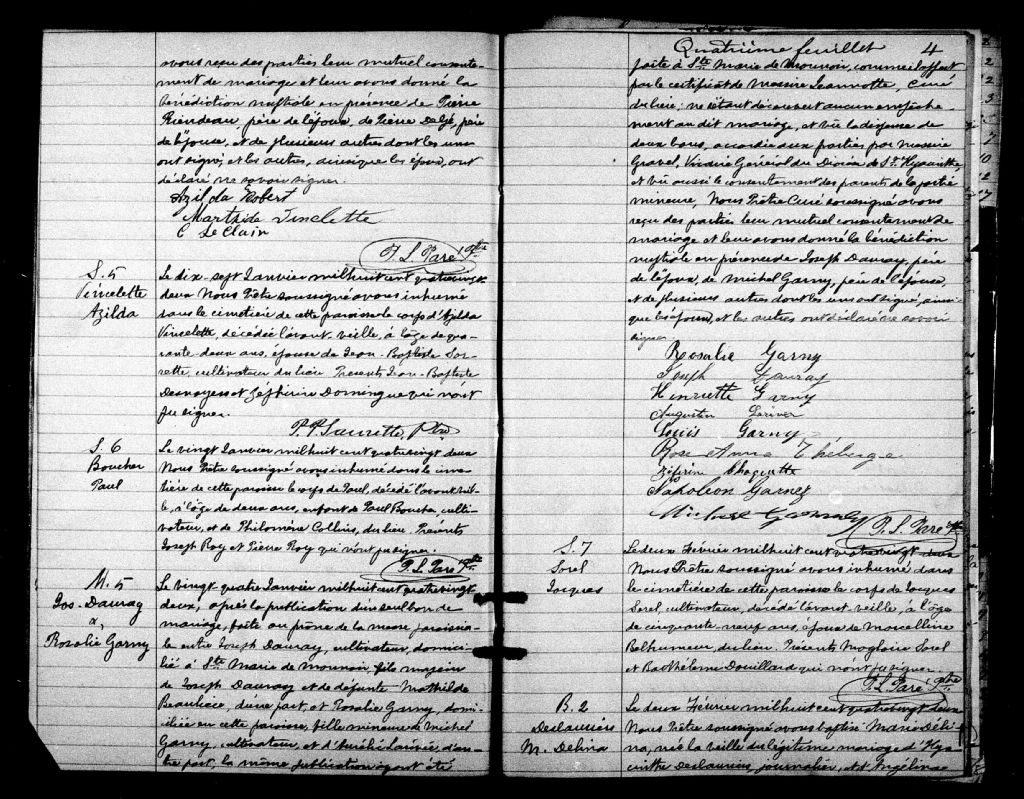 avons reçu des parties leur mutuel consente-
ment de mariage et leur avons donné la
bénédiction nuptiale en présence de Pierre
Riendeau, père de l'époux, de Pierre Delge, père
de l'épouse, et de plusieurs autres dont les uns
ont signé, et les autres, ainsi que les époux, ont
déclaré ne savoir signer.
Azilda Robert
Marthilde Vinclette
C LeClair
P. L. Paré Ptre
S. 5
Vincelette
Azilda
Le dix-sept Janvier mil huit cent quatre vingt
deux Nous Prêtre soussigné avons inhumé
dans le cimetière de cette paroisse le corps d'Azilda
Vincelette, décédée l'avant-veille, à l'âge de qua-
rante-deux ans, épouse de Jean-Baptiste
cultivateur du lieu. Présents Jean-Baptiste
Desnoyers et Zéphirin Domingue qui n'ont
pu signer.
Ptre
S. 6
Boucher
Paul
Le vingt Janvier mil huit cent quatre vingt deux
Nous Prêtre soussigné avons inhumé dans le cime-
tière de cette paroisse le corps de Paul, décédé l'avant-veil-
le, à l'âge de deux ans, enfant de Paul Boucher, culti-
vateur, et de Philomène Collins, du lieu. Présents
Joseph Roy et Pierre Roy qui n'ont pu signer.
P. L. Paré Ptre
M. 5
Jos. Dauray
&
Rosalie Garny
Le vingt quatre Janvier mil huit cent quatre vingt
deux, après la publication d'un seul ban de
mariage, faite au prône de la messe paroissia-
le entre Joseph Dauray, cultivateur, domici-
lié à Ste Marie de Monnoir, fils majeur
de Joseph Dauray et de défunte Mathilde
d'une part, et Rosalie Garny, domi-
ciliée en cette paroisse, fille mineure de Michel
Garny, cultivateur, et d'Aurélie Larivée, d'au-
tre part, la même publication ayant été
Quatrième feuillet 4
faite à Ste Marie de Monnoir, comme il appert
par le certificat de messire Jeannotte, Curé
du lieu; ne s'étant découvert aucun empêche-
ment au dit mariage, et vu la dispense de
deux bans, accordée aux parties par messire
Gravel, Vicaire Général du Diocèse de St. Hyacinthe,
et vu aussi le consentement des parents de la partie
mineure, Nous Prêtre Curé soussigné avons
reçu des parties leur mutuel consentement de
mariage et leur avons donné la bénédiction
nuptiale en présence de Joseph Dauray, père
de l'époux, de Michel Garny, père de l'épouse,
et de plusieurs autres dont les uns ont signé, ainsi
que les époux, et les autres ont déclaré ne savoir
signer
Rosalie Garny
Joseph Dauray
Henriette Garny
Augustin
Louis Garny
Rose Anna Théberge
Zéfirin Choquette
Napoleon Garney
Michel Garney
P. L. Paré Ptre
S. 7
Sorel
Jacques
Le deux Février mil huit cent quatre vingt deux
Nous Prêtre soussigné avons inhumé dans
le cimetière de cette paroisse le corps de Jacques
Sorel, cultivateur, décédé l'avant veille, à l'âge
de cinquante-neuf ans, époux de Marcelline
Belhumeur du lieu. Présents Magloire Sorel
et Barthélemi Douillard qui n'ont pu signer.
P. L. Paré Ptre
B. 2
Deslauriers
M. Delina
Le deux Février mil huit cent quatre vingt deux
Nous Prêtre soussigné avons baptisé Marie Déli-
na, née la veille du légitime mariage d'Hya-
cinthe Deslauriers, journalier, et d'Angélina